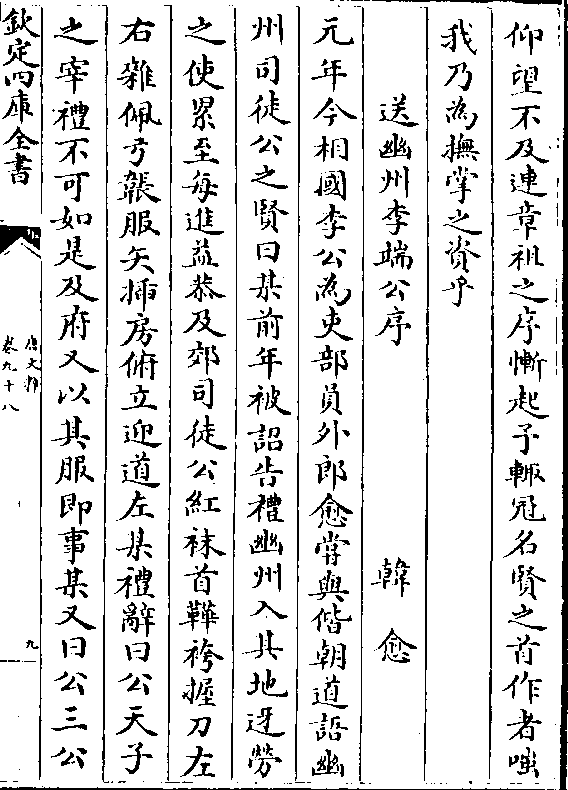 仰望不及連章祖之序慚起予輙冠名賢之首作者嗤
我乃為撫掌之資乎
送幽州李端公序
韓愈
元年今相國李公為吏部員外郎愈嘗與偕朝道語幽
州司徒公之賢曰某前年被詔告禮幽州入其地迓勞
之使累至每進益恭及郊司徒公紅袜首鞾袴握刀左
右雜佩弓韔服矢插房俯立迎道左某禮辭曰公天子
之宰禮不可如是及府又以其服即事某又曰公三公
欽定四庫全書
唐文粹
卷九十八
九